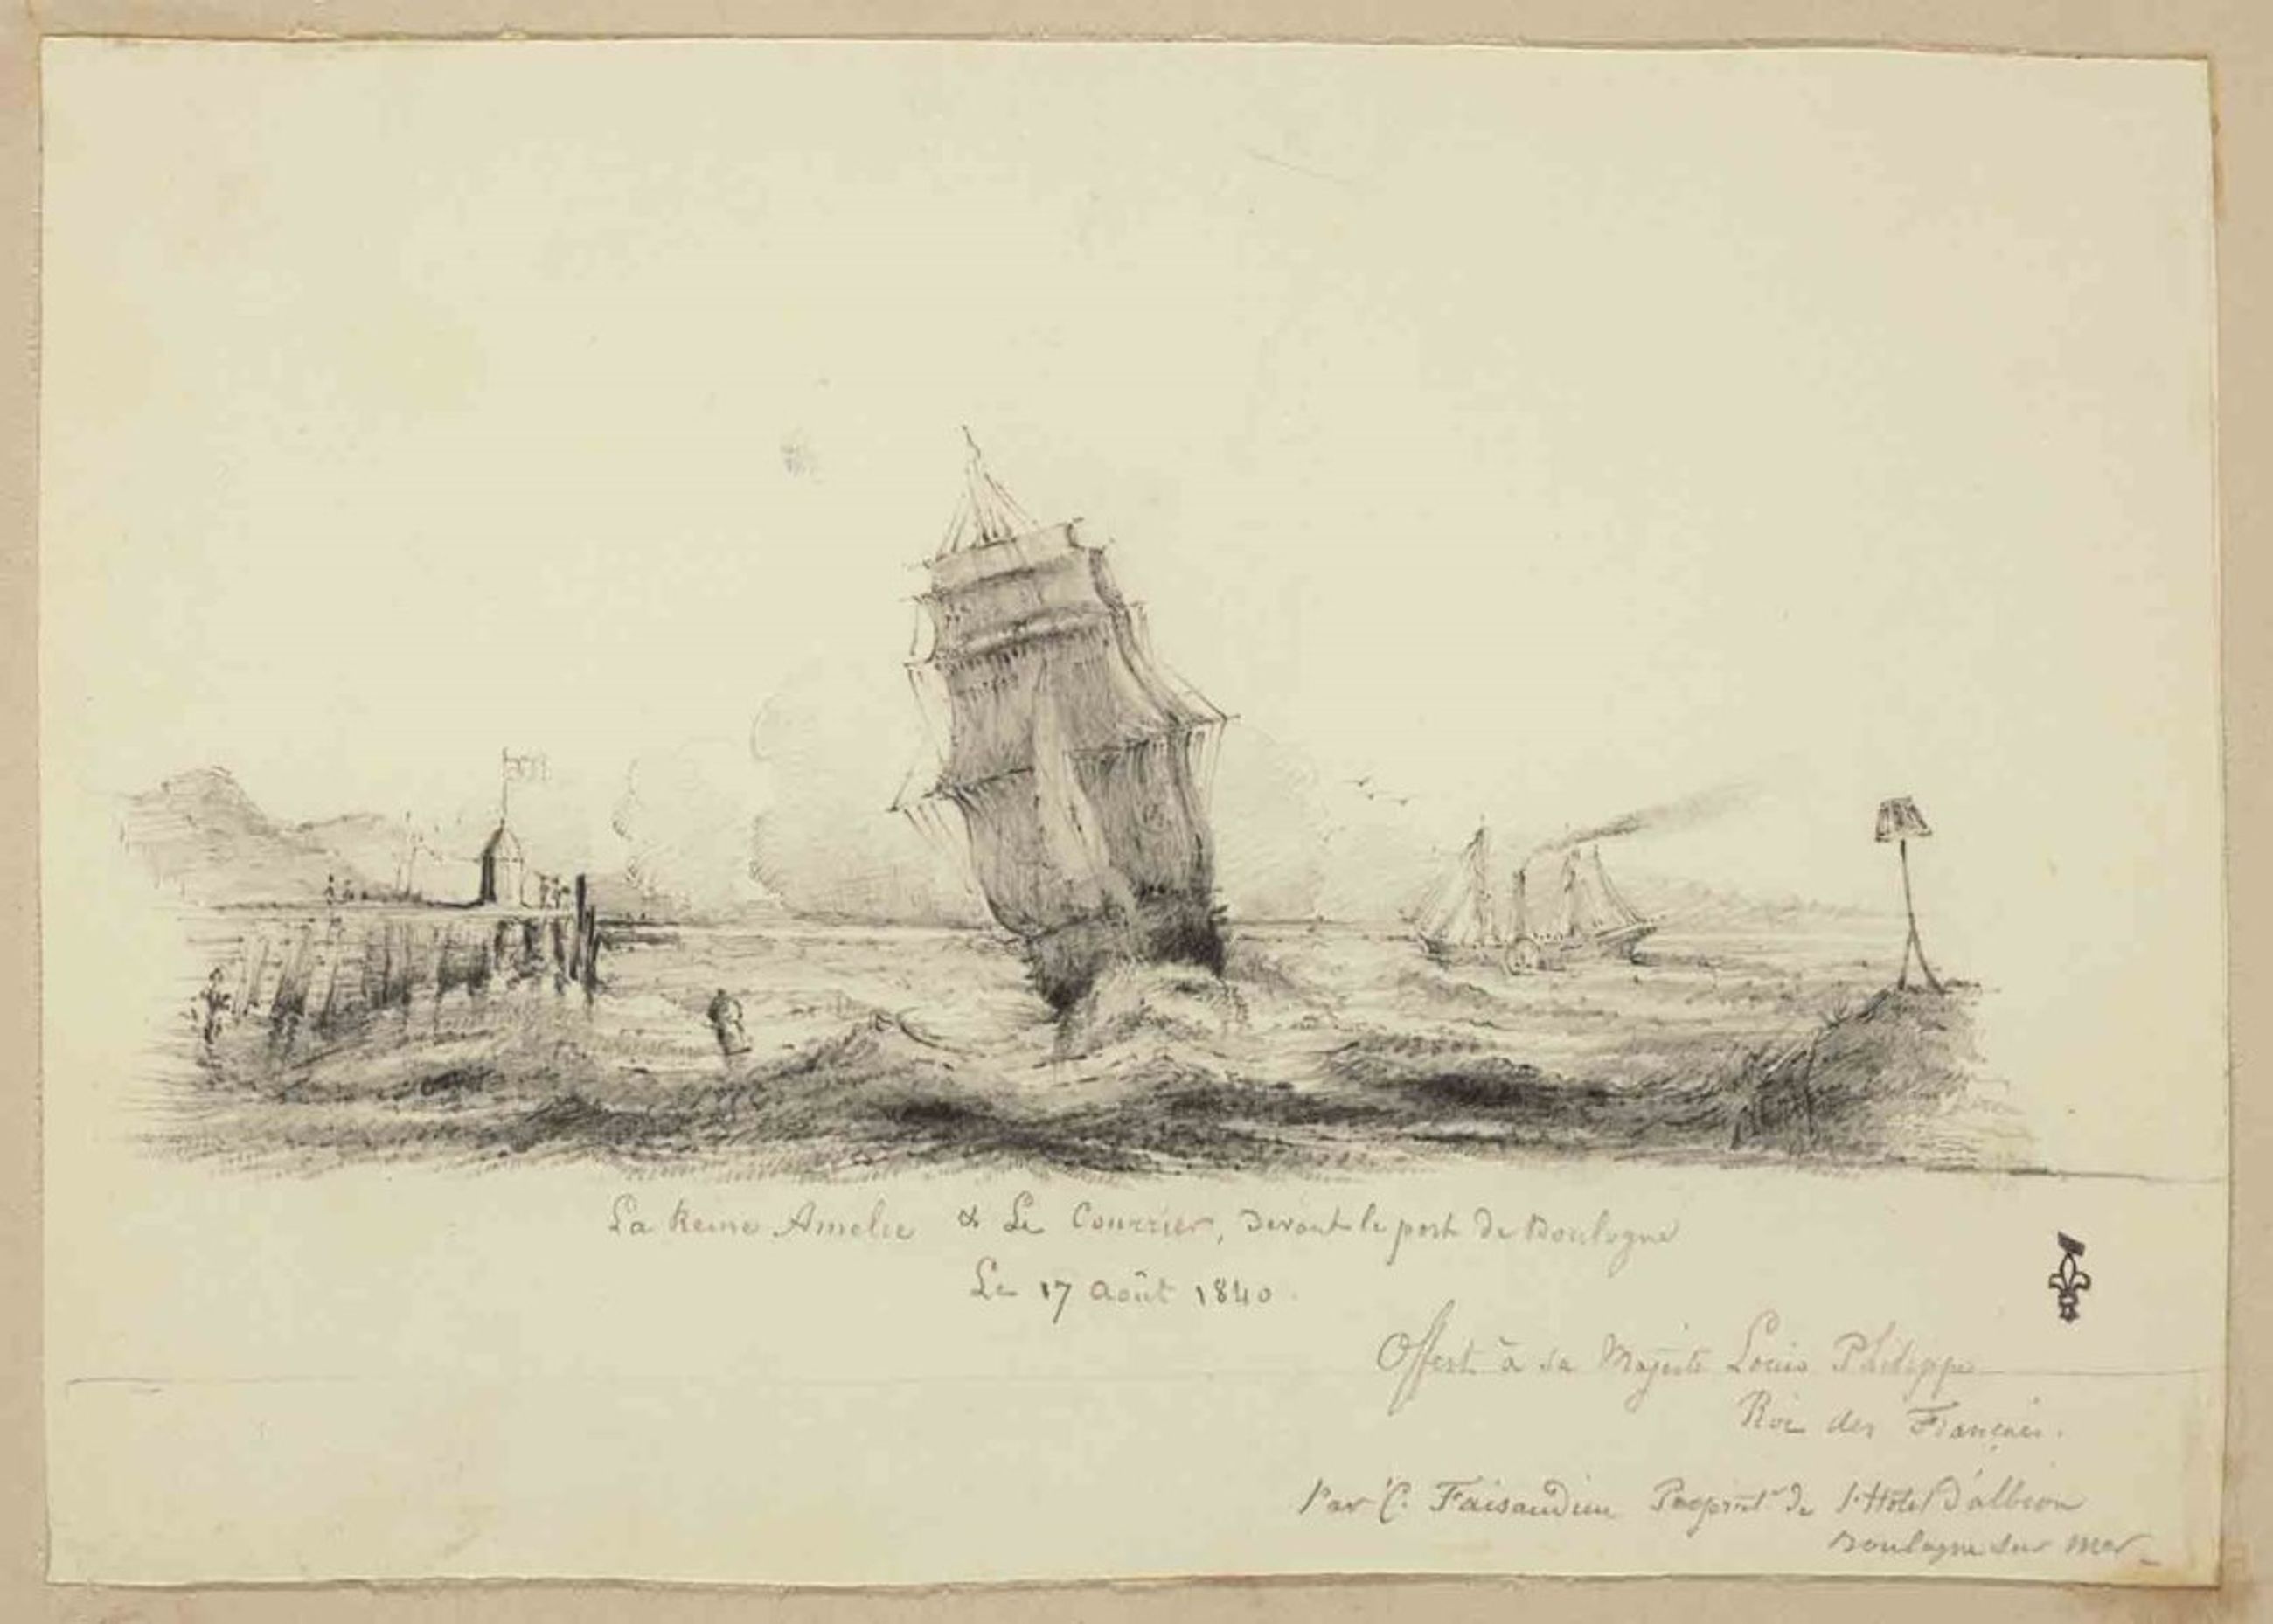 La Reine Amelie & Le Courrier, Devant le port de Boulogne
Le 17 Août 1840.
Offert à sa Majesté Louis Philippe
Roi des Français.
Par C. Faisandieu Propriét.re de l'Hôtel D'albion
Boulogne sur Mer